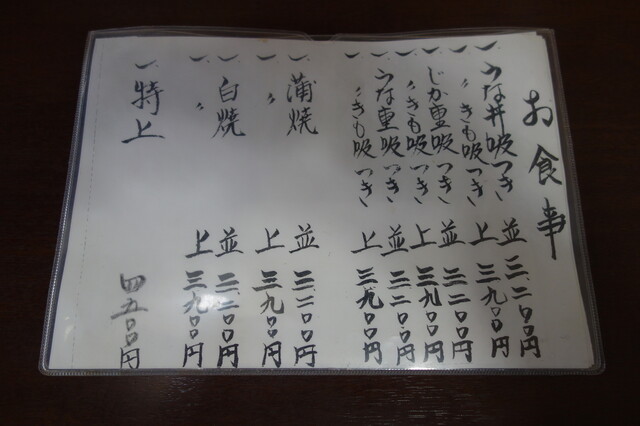 お食事
一、うな丼吸つき 並 三二〇〇円
一、〃きも吸つき 上 三九〇〇円
一、じか重吸つき 並 三二〇〇円
一、〃きも吸つき 上 三九〇〇円
一、うな重吸つき 並 三二〇〇円
一、〃きも吸つき 上 三九〇〇円
一、蒲焼 並 三二〇〇円
一、〃 上 三九〇〇円
一、白焼 並 三二〇〇円
一、〃 上 三九〇〇円
一、特上 四五〇〇円